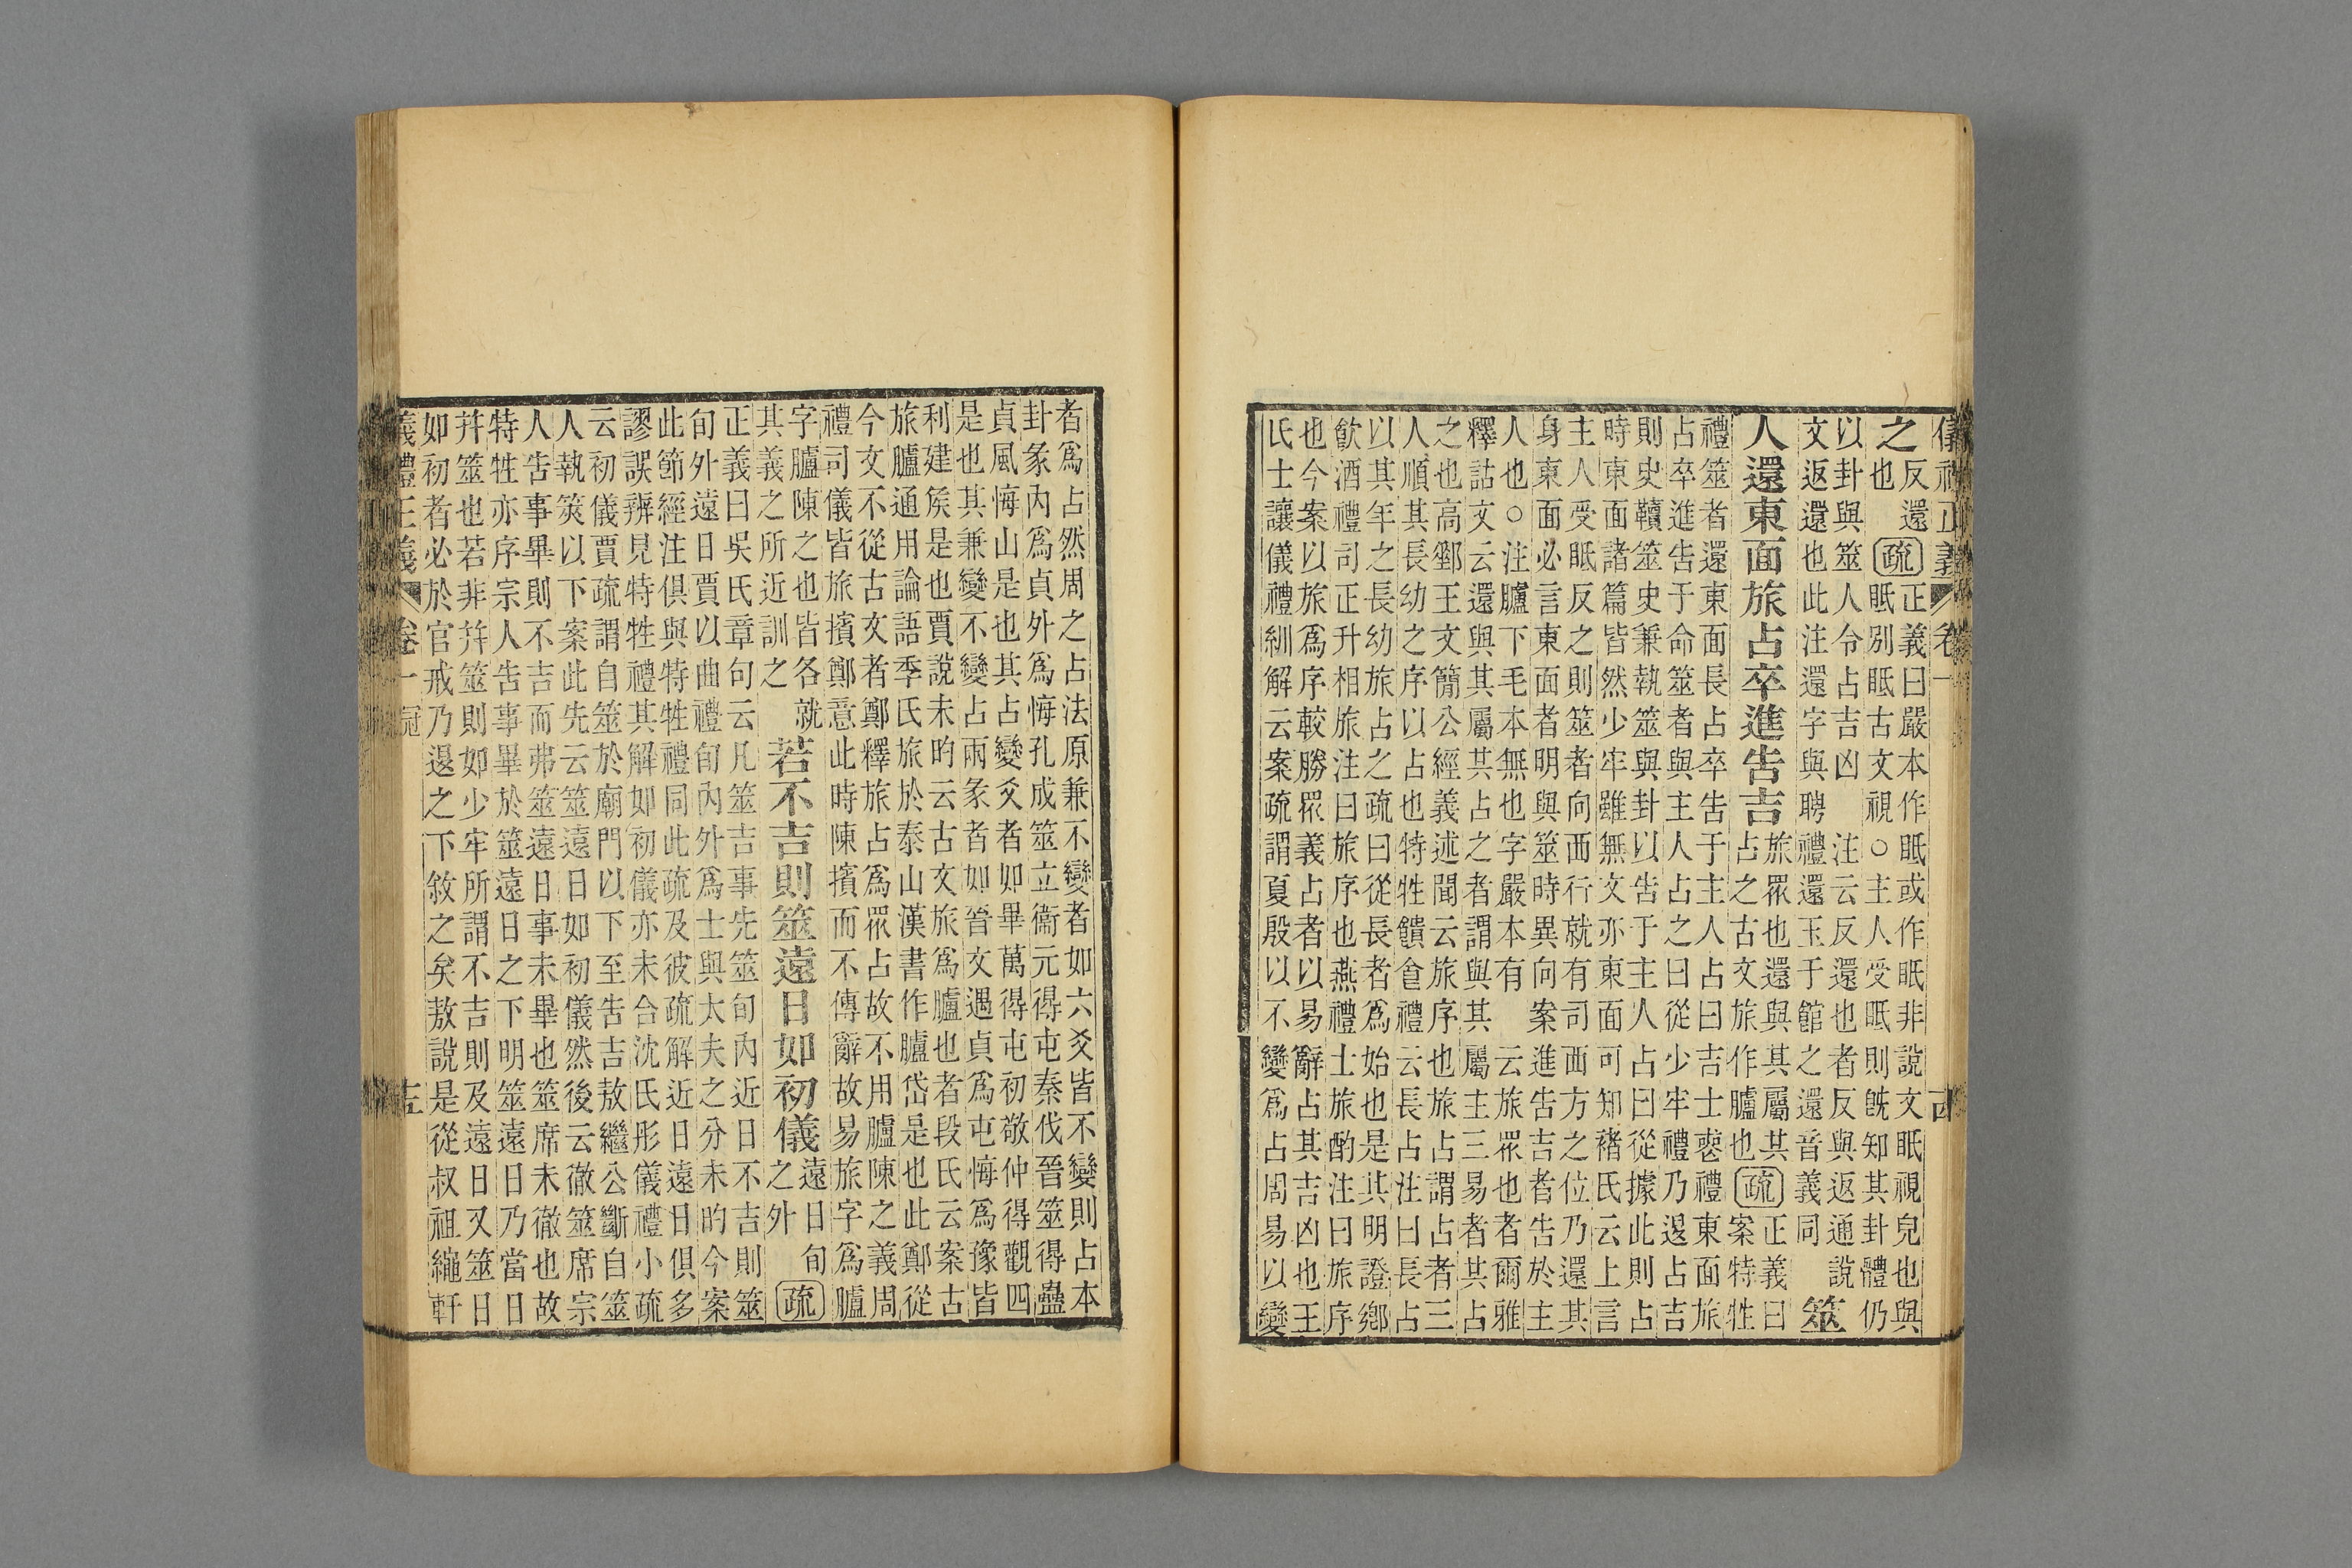 儀禮正義 卷一 古
之反還
也
疏
正義曰嚴本作眡或作眠非說文眠視皃也與
眡別眡古文視○主人受眡則旣知其卦體仍
以卦與筮人令占吉凶 注云反還也者反與返通說
文返還也此注還字與聘禮還玉于館之還音義同 筮
人還東面旅占卒進告吉
旅眾也還與其屬其
占之古文旅作臚也
疏
正義曰
案特牲
禮筮者還東面長占卒告于主人占曰吉士喪禮東面旅
占卒進告于命筮者與主人占之曰從少牢禮乃退占吉
則史韇筮史兼執筮與卦以告于主人占曰從據此則占
時東面諸篇皆然少牢雖無文亦東面可知褚氏云上言
主人受眡反之則筮者向西行就有司西方之位乃還其
身東面必言東面者明與筮時異向案進告吉者告於主
人也○注臚下毛本無也字嚴本有 云旅眾也者爾雅
釋詁文云還與其屬其占之者謂與其屬主三易者其占
之也高郵王文簡公經義述聞云旅序也旅占謂占者三
人順其長幼之序以占也特牲饋食禮云長占注曰長占
以其年之長幼旅占之疏曰從長者爲始也是其明證鄉
飮酒禮司正升相旅注曰旅序也燕禮士旅酌注曰旅序
也今案以旅爲序較勝眾義占者以易辭占其吉凶也王
氏士讓儀禮紃解云案疏謂夏殷以不變爲占周易以變
者爲占然周之占法原兼不變者如六爻皆不變則占本
卦彖內爲貞外爲悔孔成筮立衞元得屯秦伐晉筮得蠱
貞風悔山是也其占變爻者如畢萬得屯初敬仲得觀四
是也其兼變不變占兩彖者如晉文遇貞爲屯悔爲豫皆
利建侯是也賈說未昀云古文旅爲臚也者段氏云案古
旅臚通用論語季氏旅於泰山漢書作臚岱是也此鄭從
今文不從古文者鄭釋旅占爲眾占故不用臚陳之義周
禮司儀皆旅擯鄭意此時陳擯而不傳辭故易旅字爲臚
字臚陳之也皆各就
其義之所近訓之
若不吉則筮遠日如初儀
遠日旬
之外
疏
正義曰吳氏章句云凡筮吉事先筮旬內近日不吉則筮
旬外遠日賈以曲禮旬內外爲士與大夫之分未昀今案
此節經注俱與特牲禮同此疏及彼疏解近日遠日俱多
謬誤辨見特牲禮其解如初儀亦未合沈氏彤儀禮小疏
云初儀賈疏謂自筮於廟門以下至告吉敖繼公斷自筮
人執筴以下案此先云筮遠日如初儀然後云徹筮席宗
人告事畢則不吉而弗筮遠日事未畢也筮席未徹也故
特牲亦序宗人告事畢於筮遠日之下明筮遠日乃當日
幷筮也若非幷筮則如少牢所謂不吉則及遠日又筮日
如初者必於官戒乃退之下敘之矣敖說是從叔祖繩軒
儀禮正義 卷一 冠